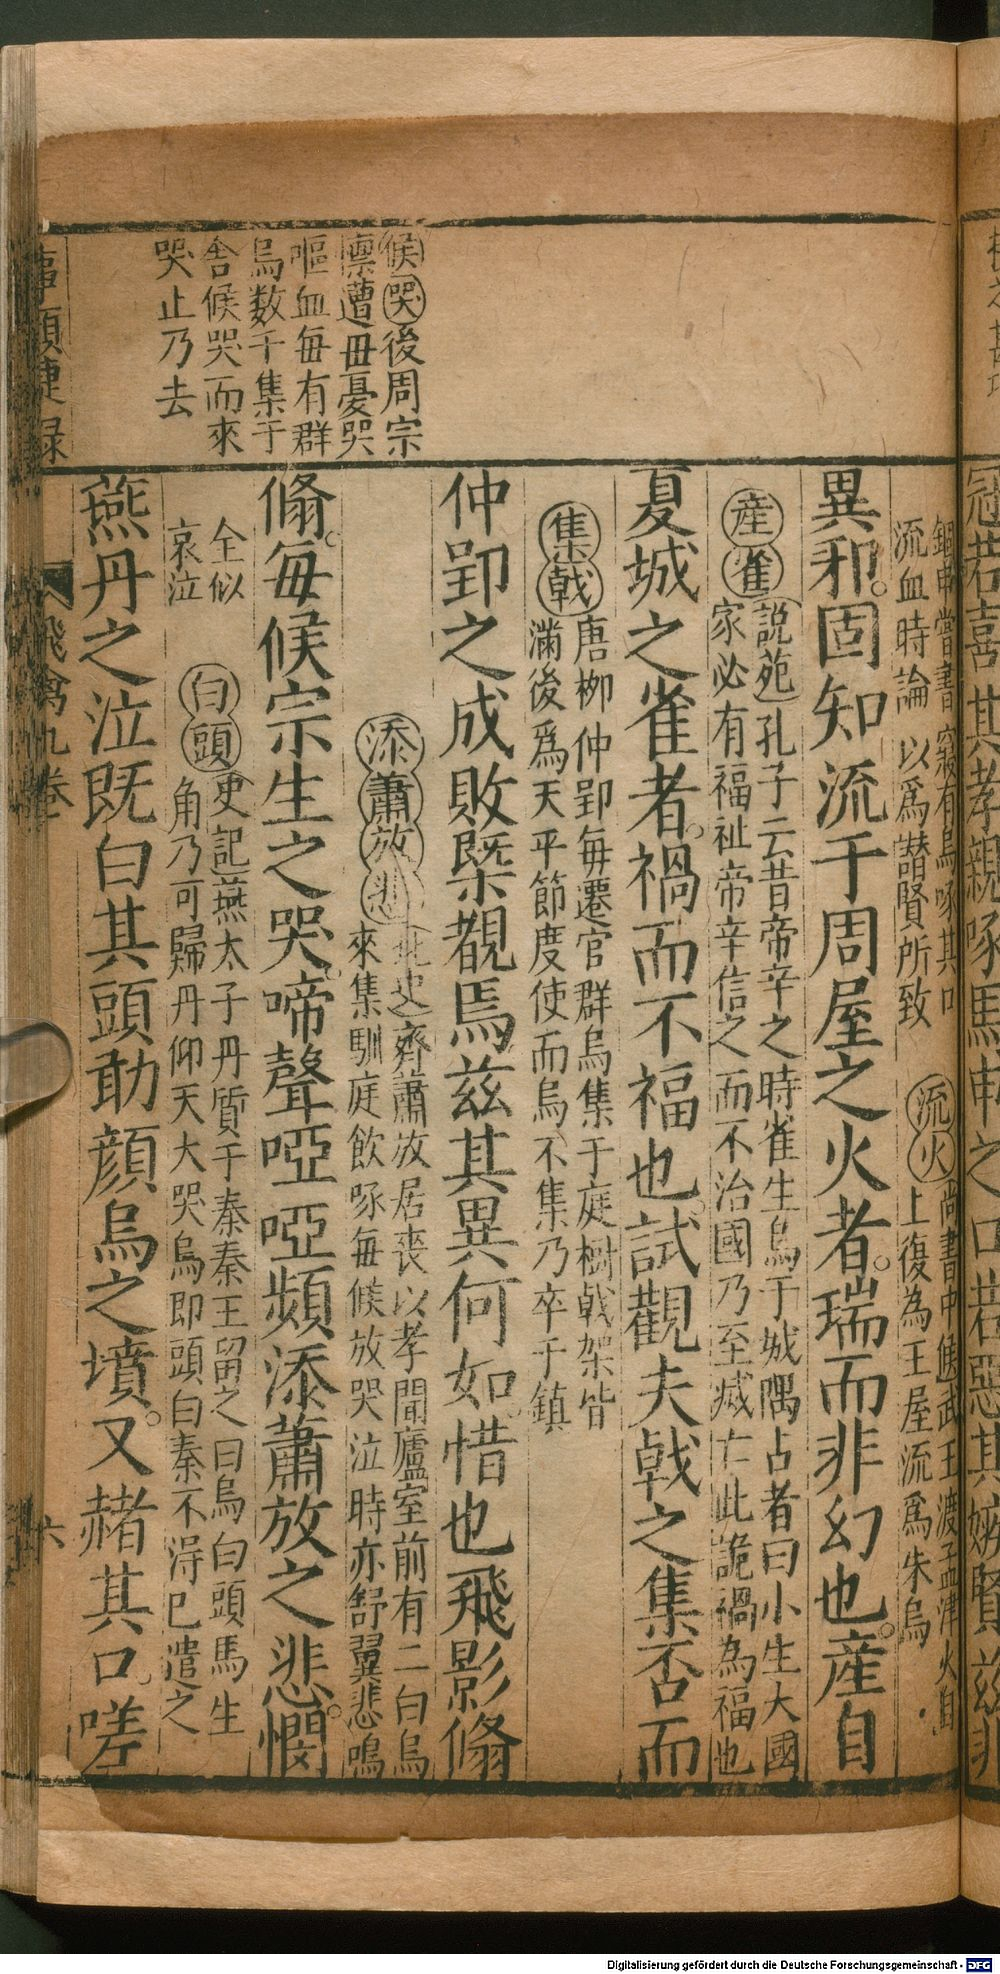 候哭後周宗
懔遭毋憂哭
嘔血每有群
烏数千集于
舍候哭而來
哭止乃去
冠若喜其孝親啄馬申之口若惡其嫉賢兹非
銅申嘗書寂有烏啄其口
流血時論以爲譛賢所致
流火尚書中候武王渡孟津火自
上復為王屋流爲朱烏
異邪。固知流于周屋之火者。瑞而非幻也。産自
産雀說苑孔子云昔帝辛之時雀生烏于城隅占者曰小生大國
家必有福祉帝辛信之而不治國乃至烕亡此詭禍為福也
夏城之雀者。禍而不福也。試觀夫戟之集否而
集戟唐栁仲郢每遷官群烏集于庭樹戟架皆
滿後爲天平節度使而烏不集乃卒于鎮
仲郢之成敗槩覩焉兹其異何如。惜也飛影翛
添蕭放悲北史齊蕭放居丧以孝聞廬室前有二白烏
來集馴庭飲啄每候放哭泣時亦舒翼悲鳴
翛。每候宗生之哭。啼聲啞啞頻添蕭放之悲。憫
全似
哀泣
白頭史記燕太子丹質于秦秦王留之曰烏白頭馬生
角乃可歸丹仰天大哭烏即頭白秦不得已遣之
燕丹之泣既白其頭助顔烏之墳。又赭其口。嗟
事類捷録
飛禽九卷
六
Digitalisierung gefördert durch die Deutsche Forschungsgemeinschaft - DFG